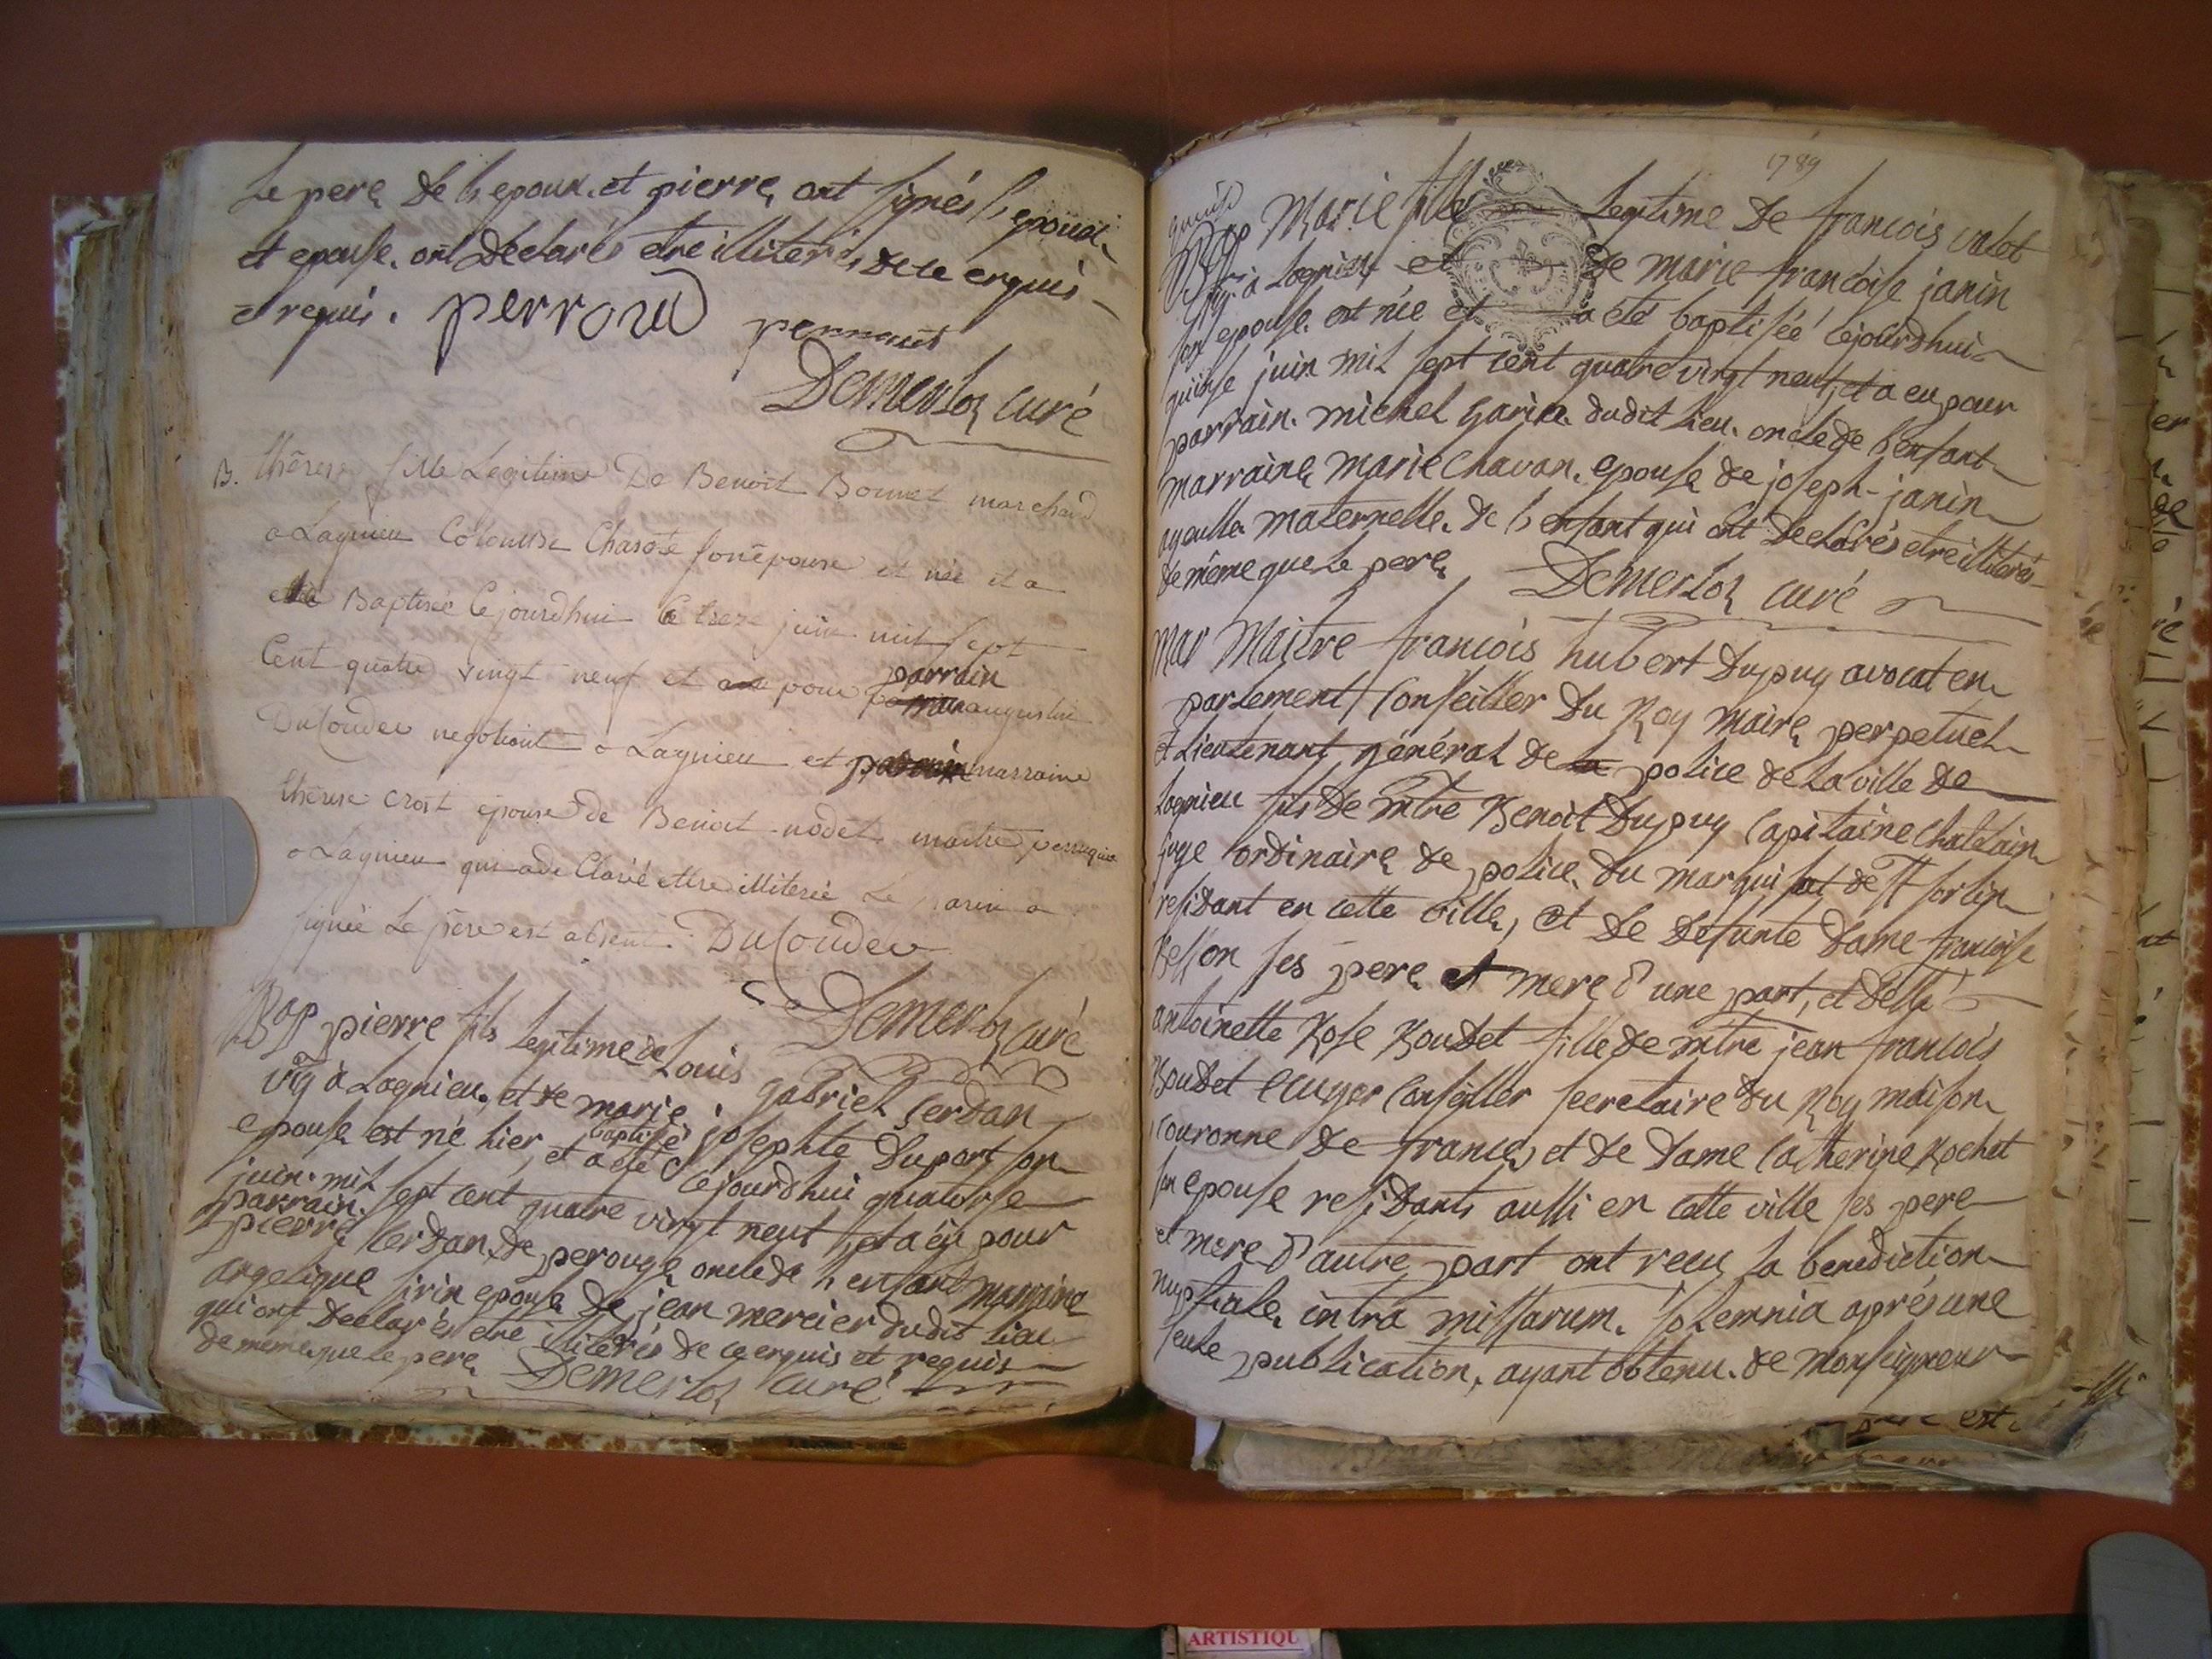 Le pere de l'epoux et pierre ont signés l'epoux
et epouse ont déclarés etre illiterés de ce enquis
et requis. perroud
perroud
Demerloz curé
B. thérese fille Legitime De Benoit Bonnet marchand
a Lagnieu Colombe Chasote son épouse et née et a
etée Baptisée Cejourdhui Ce treze juin mil sept
Cent quatre vingt neuf et a eu pour parrain augustin
DuCoudée negotiant a Lagnieu et marraine
thérese crost épouse de Benoit nodet maitre perruquier
a Lagnieu qui a de Claréé ettre illiterée Le parin a
signée Le père est absent DuCoudée
Demerloz curé
Bap pierre fils legitime de Louis gabriel Cerdan
vig à Lagnieu, et de marie josephte Duport son
epouse est né hier, et a eté baptisé cejourdhui quatorse
juin mil sept cent quatre vingt neuf, et a eu pour
parrain
pierre Cerdan de perouge oncle de l'enfant marraine
angelique sirin epouse de jean mercier dudit lieu
qui ont declarés etre illiterés de ce enquis et requis
de meme que le pere Demerloz curé
1789
Bap Marie fille Legitime De francois valet
vig à Lagnieu et de marie francoise janin
son epouse est née et a été baptisée cejourdhui
quinse juin mil sept cent quatre vingt neuf, et a eu pour
parrain michel garin dudit lieu oncle de l'enfant
marraine marie Chavan epouse de joseph janin
ayeulle maternelle de l'enfant qui ont declarés etre illiterés
de même que le pere Demerloz curé
Mar Maitre francois hubert Dupuy avocat en
parlement Conseiller du Roy maire perpetuel
et Lieutenant général de la police de la ville de
Lagnieu fils de mtre Benoit Dupuy Capitaine Chatelain
juge ordinaire de police du marquisat de St sorlin
residant en cette ville, et de defunte Dame francoise
Besson ses pere et mere d'une part, et delle
antoinette Rose Boudet fille de mtre jean francois
Boudet ecuyer Conseiller Secretaire du Roy maison
couronne de france, et de Dame Catherine Rochet
son epouse residants aussi en cette ville ses pere
et mere d'autre part ont recu la benediction
nuptiale intra missarum solemnia aprés une
seule publication, ayant obtenu de Monseigneur
ARTISTIQU